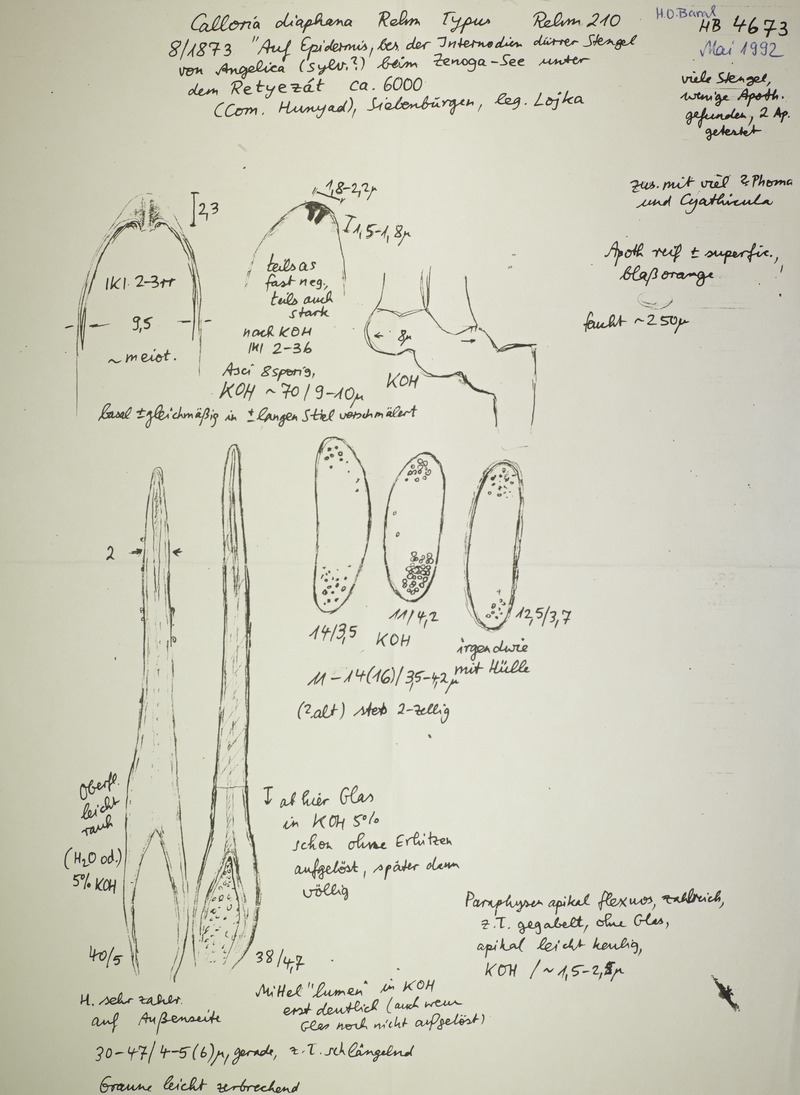 Calloria diaphana Rehm Typus Rehm 210
8/1873 "Auf Epidermis, bes. der Internodien dürrer Stengel
von Angelica (sylv.?) beim Zenoga-See unter
dem Retyezát ca. 6000
(Com. Hunyad), Siebenbürgen, leg. Lojka
H.O. Baral
HB 4673
Mai 1992
viele Stengel,
wenige Apoth.
gefunden, 2 Ap.
getestet
zus. mit viel ? Phoma
und Cyathicula
Apoth reif ± superfic.,
blaßorange
feucht ~250µ
2,3
IKI 2-3rr
9,5
~ meiot.
1,8-2,2µ
1,5-1,8µ
teils as
fast neg,
teils auch
stark
nach KOH
IKI 2-3b
Asci 8sporig,
KOH ~70/9-10µ
basal ± gleichmäßig in ± langen Stiel verschmälert
8µ
KOH
2
14/3,5
11/4,2
KOH
12,5/3,7
irgendwie
mit Hülle
11-14(16)/3,5-4,2µ
(? alt) stets 2-zellig
Oberfl.
leicht
rauh
(H2O od.)
5% KOH
40/5
38/4,7
ab hier Glas
in KOH 5%
schon ohne Erhitzen
aufgelöst, später dann
völlig
Paraphysen apikal flexuos, zahlreich,
z.T. gegabelt, ohne Glas,
apikal leicht keulig,
KOH / ~1,5-2,5µ
H. sehr zaher
auf Außenseite
Mittel "lumen" in KOH
erst deutlich (auch wenn
Glas noch nicht aufgelöst)
30-47/4-5(6)µ, gerade, z.T. schlängelnd
Granne leicht zerbrechend